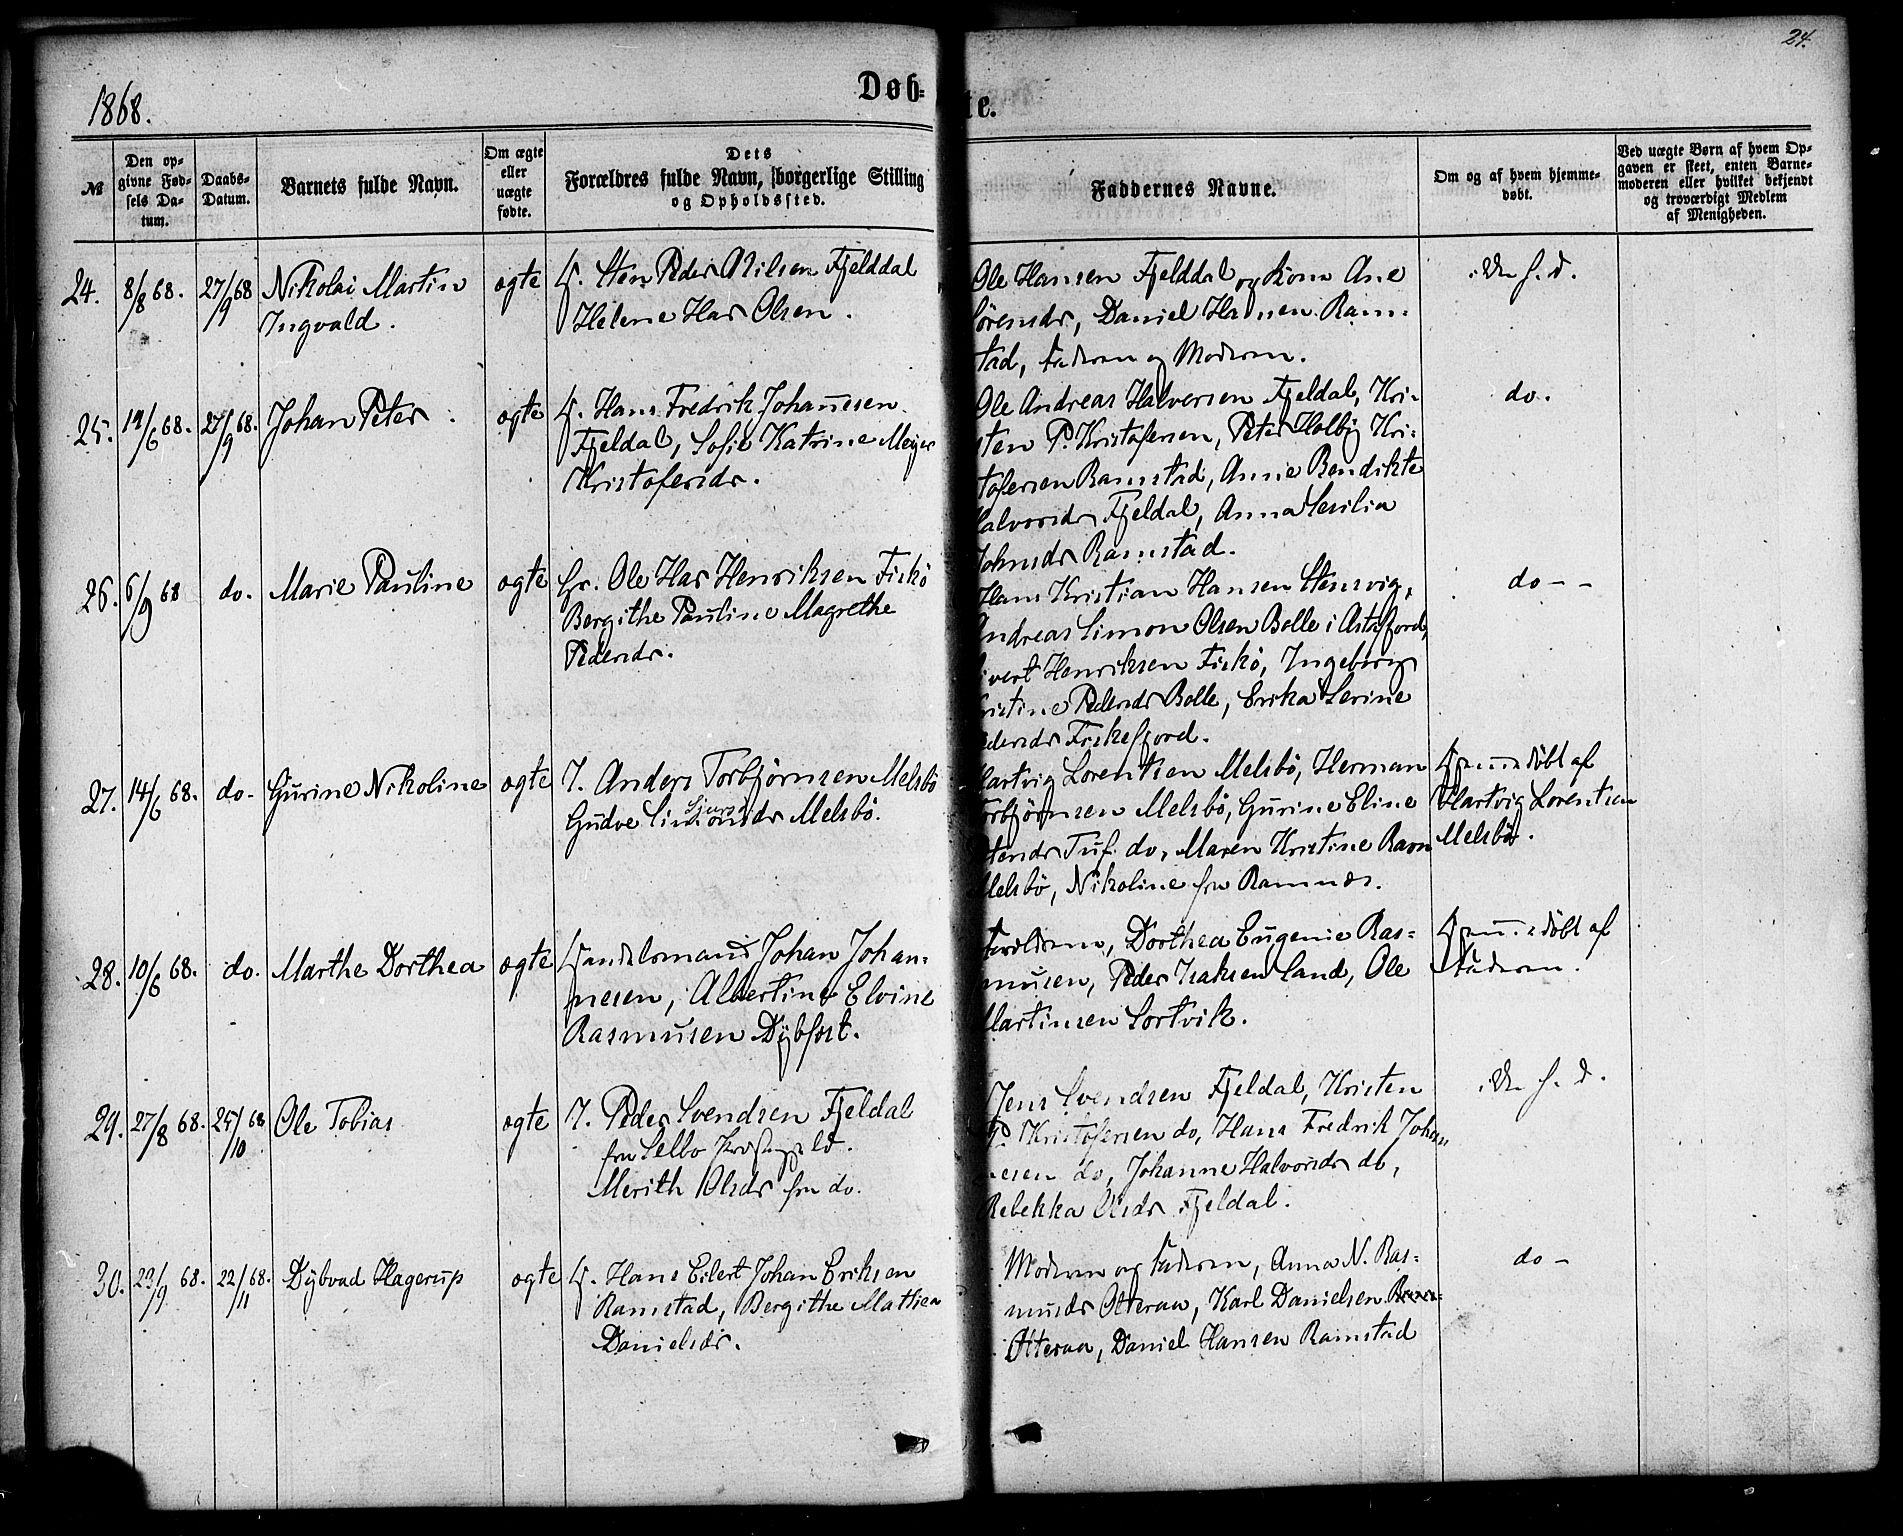 24.
1868.
Døb-
te.
№
Den op-
givne Fød-
sels Da-
tum.
Daabs-
Datum.
Barnets fulde Navn.
Om ægte
eller
uægte
fødte.
Dets
Forældres fulde Navn, borgerlige Stilling
og Opholdssted.
Faddernes Navne.
Om og af hvem hjemme-
døbt.
Ved uægte Børn af hvem Op-
gaven er skeet, enten Barne-
moderen eller hvilket bekjendt
og troværdigt Medlem
af Menigheden.
24. 8/8 68. 27/9 68 Nikolai Martin
Ingvald.
ægte
Peder Nilsen Fjelddal
Helene Has Olsen.
Ole Hansen Fjelddal og Kone Ane
Sørensdr, Daniel Hansen Ram-
stad, Faderen og Moderen.
25. 19/6 68. 27/9 68. Johan Peter.
ægte
Hans Fredrik Johannesen
Fjeldal, Sofie Katrine Meyer
Kristofersdr.
Ole Andreas Halvorsen Fjeldal, Kri-
sten P. Kristofersen, Peter Holbig Kri-
stofersen Ramstad, Anne Bendikte
Halvorsdr Fjeldal, Anna Sesilia
Johnsdr Ramstad.
do.
26. 6/9 68 do. Marie Pauline
ægte
Ole Has Henriksen Fiskö
Bergithe Pauline Magrethe
Pedersdr.
Hans Kristian Hansen Stensvig,
Andreas Simon Olsen Bolle i Astafjord,
Sivert Henriksen Fiskö, Ingeborg
Kristine Pedersdr Bolle, Erika Serine
Pedersdr Fiskefjord.
do - -
27. 14/6 68. do. Gurine Nikoline
ægte
I. Anders Torbjörnsen Melsbö
Gudve Melsbö.
Hartvig Lorentsen Melsbö, Herman
Torbjörnsen Melsbö, Gurine Eline
do, Maren Kristine Ravn
Melsbö, Nikoline fra Ramnæs.
döbt af
Hartvig Lorentsen
Melsbö.
28. 10/6 68. do. Marthe Dorthea
ægte
Handelsmand Johan Johan-
nesen, Albertine Elvine
Rasmusen Dybfest.
Forældrene, Dorthea Eugenie Ras-
musen, Peder Isaksen Sand, Ole
Martinsen Sortvik.
döbt af
Faderen.
29. 27/8 68. 25/10 68 Ole Tobias
ægte
I. Peder Svendsen Fjeldal
fra Selbo Præstegjeld.
Merith Olsdr fra do.
Jens Svendsen Fjeldal, Kristen
P Kristofersen do, Hans Fredrik Johan
nesen do, Johanne Halvorsdr do,
Rebekka Olsdr Fjeldal.
30. 23/9 68. 22/11 68. Dybvad Hagerup
ægte
Hans Eilert Johan Eriksen
Ramstad, Bergithe Mathea
Danielsdr.
Moderen og Faderen, Anna N. Ras-
musdr Otteraa, Karl Danielsen
Otteraa, Daniel Hansen Ramstad
do -